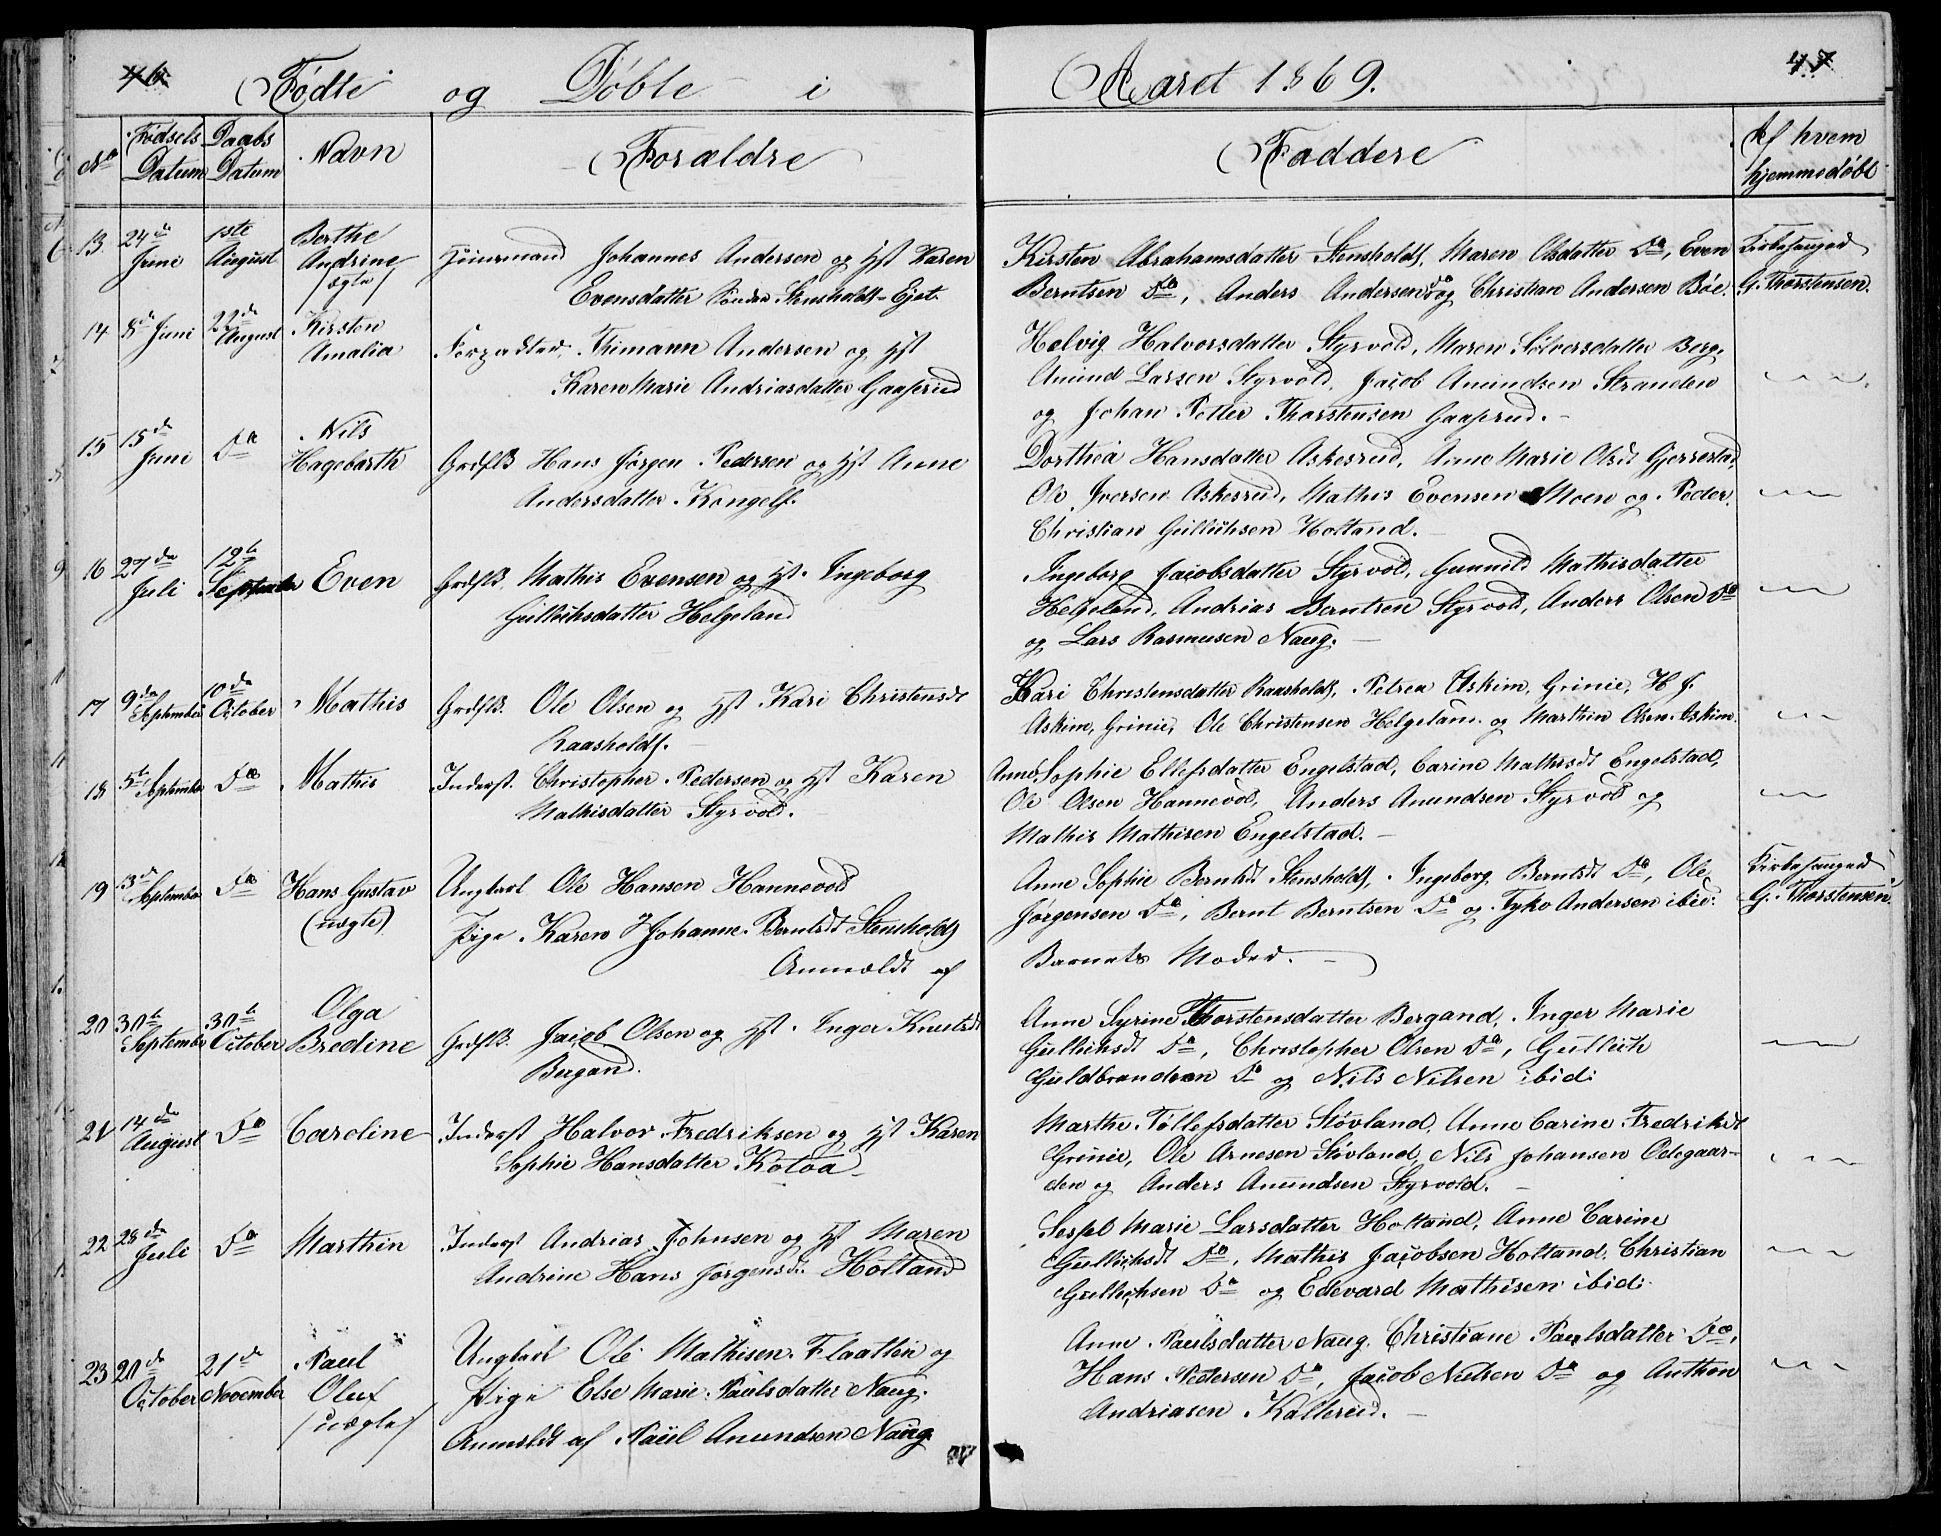 46
Födte og Döbte i
Aaret 1869.
47
No Födsels Datum Daabs Datum Navn Forældre Faddere Af hvem hjemmedöbt
13. 24de Juni 1ste August Berthe Andrine /ægte/ Huusmand Johannes Andersen og Hst Karen
Evensdatter Söndre Stensholdt-Ejet.
Kirsten Abrahamsdatter Stensholdt, Maren Olsdatter Do, Even
Berntsen Do, Anders Andersen Do og Christian Andersen Böe.
Kirkesanger
G. Thorstensen.
14 8de Juni 22de August Kirsten Amalia Forpagter Thimann Andersen og Hst
Karen Marie Andriasdatter Gaaserud
Helvig Halvorsdatter Styrvold, Maren Sölversdatter Berg,
Amund Larsen Styrvold, Jacob Amundsen Stranden
og Johan Petter Thorstensen Gaaserud.
15 15de Juni Do Nils Hagebarth Grdfls Hans Jörgen Pedersen og Hst Anne
Andersdatter Kongelf.
Dorthea Hansdatter Askesrud, Anne Marie Olsdt Gjerrestad,
Ole Iversen Askesrud, Mathis Evensen Moen og Peder
Christian Gullichsen Holtand.
16 27de Juli 12te September Even Grdfls Mathis Evensen og Hst. Ingeborg
Gulliksdatter Helgeland
Ingeborg Jacobsdatter Styrvold, Gunnild Mathisdatter
Helgeland, Andrias Berntsen Styrvold, Anders Olsen Do
og Lars Rasmusen Naug.
17 9de September 10de October Mathis Grdfls. Ole Olsen og Hst Kari Christensdt
Raasholdt.
Kari Christensdatter Raasholdt, Petrea Askim, Grinie, H J.
Askim, Grinie, Ole Christensen Helgeland og Marthin Olsen Askim.
18 5te September Do Mathis Inderst. Christopher Pedersen og Hst Karen
Mathisdatter Styrvold.
Anne Sophie Ellefsdatter Engelstad, Carine Mathisdt Engelstad,
Ole Olsen Hannevold, Anders Anundsen Styrvold og
Mathis Mathisen Engelstad.
19 13de September Do Hans Gustav (uægte) Ungkarl Ole Hansen Hannevold
Pige Karen Johanne Berntsdt Stensholdt
Anmeldt af
Anne Sophie Berntsdt Stensholdt, Ingeborg Berntsdt Do, Ole
Jörgensen Do, Bernt Berntsen Do og Tyko Andersen ibid.
Barnets Moder.
Kirkesanger
G. Thorstensen.
20 30te September 30te October Olga Bredine Grdfls. Jacob Olsen og Hst. Inger Knutsdt
Bergand.
Anne Syrine Thorstensdatter Bergand, Inger Marie
Gulliksdt Do, Christopher Olsen Do, Gullich
Guldbrandsen Do og Nils Nilsen ibid:
21 14de August Do Caroline Inderst Halvor Fredriksen og Hst Karen
Sophie Hansdatter Kotoa
Marthe Töllefsdatter Stövland, Anne Carine Fredriksdt
Grinie, Ole Arnesen Stövland, Nils Johansen Odegaar-
den og Anders Anundsen Styrvold.
22 28de Juli Do Marthin Inderst Andrias Johnsen og Hst Maren
Andrine Hans Jorgensdt. Holtand
Sessel Marie Larsdatter Holtand, Anne Carine
Gulliksdt Do, Mathis Jacobsen Holtand, Christian
Gullichsen Do og Edevard Mathisen ibid:
23 20de October 21de November Paul Oluf /uægte/ Ungkarl Ole Mathisen Flaatten og
Pige Else Marie Paulsdatter Naug.
Anmeldt af Paul Anundsen Naug.
Anne Paulsdatter Naug, Christiane Paulsdatter Do,
Hans Pedersen Do, Jacob Nielsen Do og Anthon
Andriasen Kallerud.